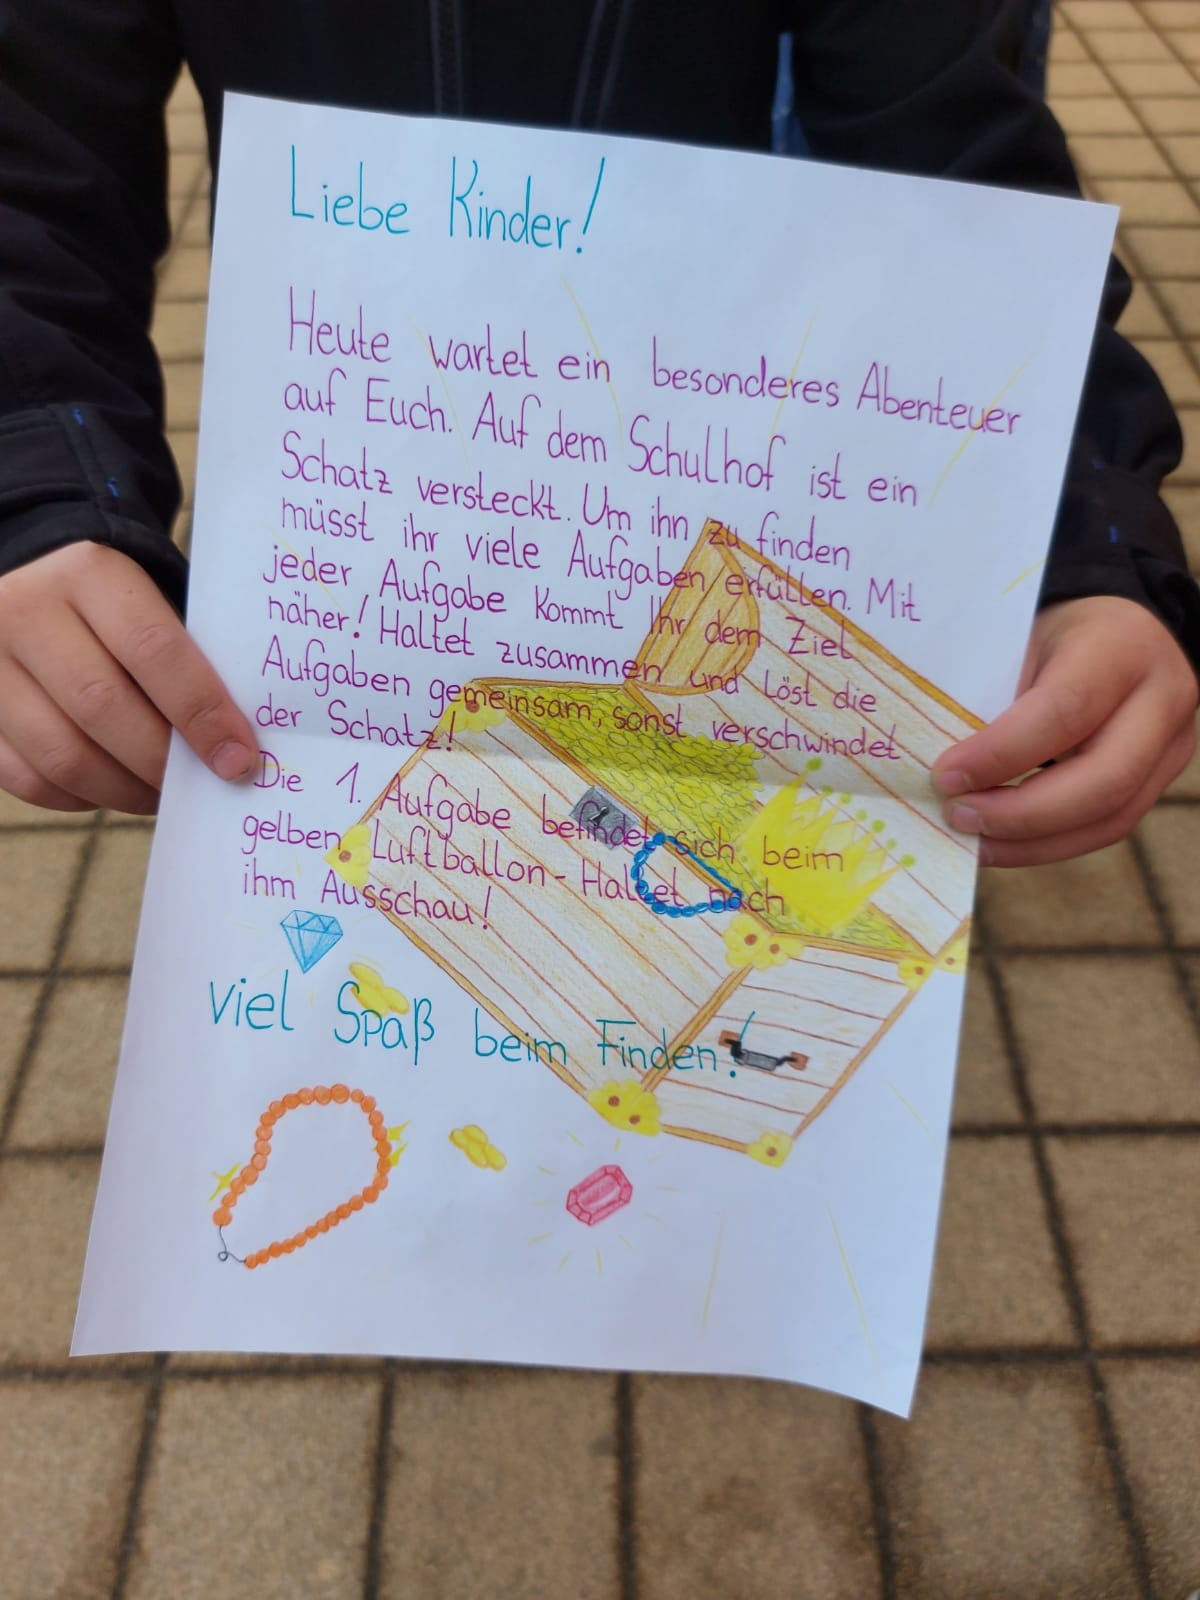 Liebe Kinder!
Heute wartet ein besonderes Abenteuer
auf Euch. Auf dem Schulhof ist ein
Schatz versteckt. Um ihn zu finden
müsst ihr viele Aufgaben erfüllen. Mit
jeder Aufgabe kommt Ihr dem Ziel
näher! Haltet zusammen und löst die
Aufgaben gemeinsam, sonst verschwindet
der Schatz!
Die 1. Aufgabe befindet sich beim
gelben Luftballon - Haltet nach
ihm Ausschau!
viel Spaß beim Finden!